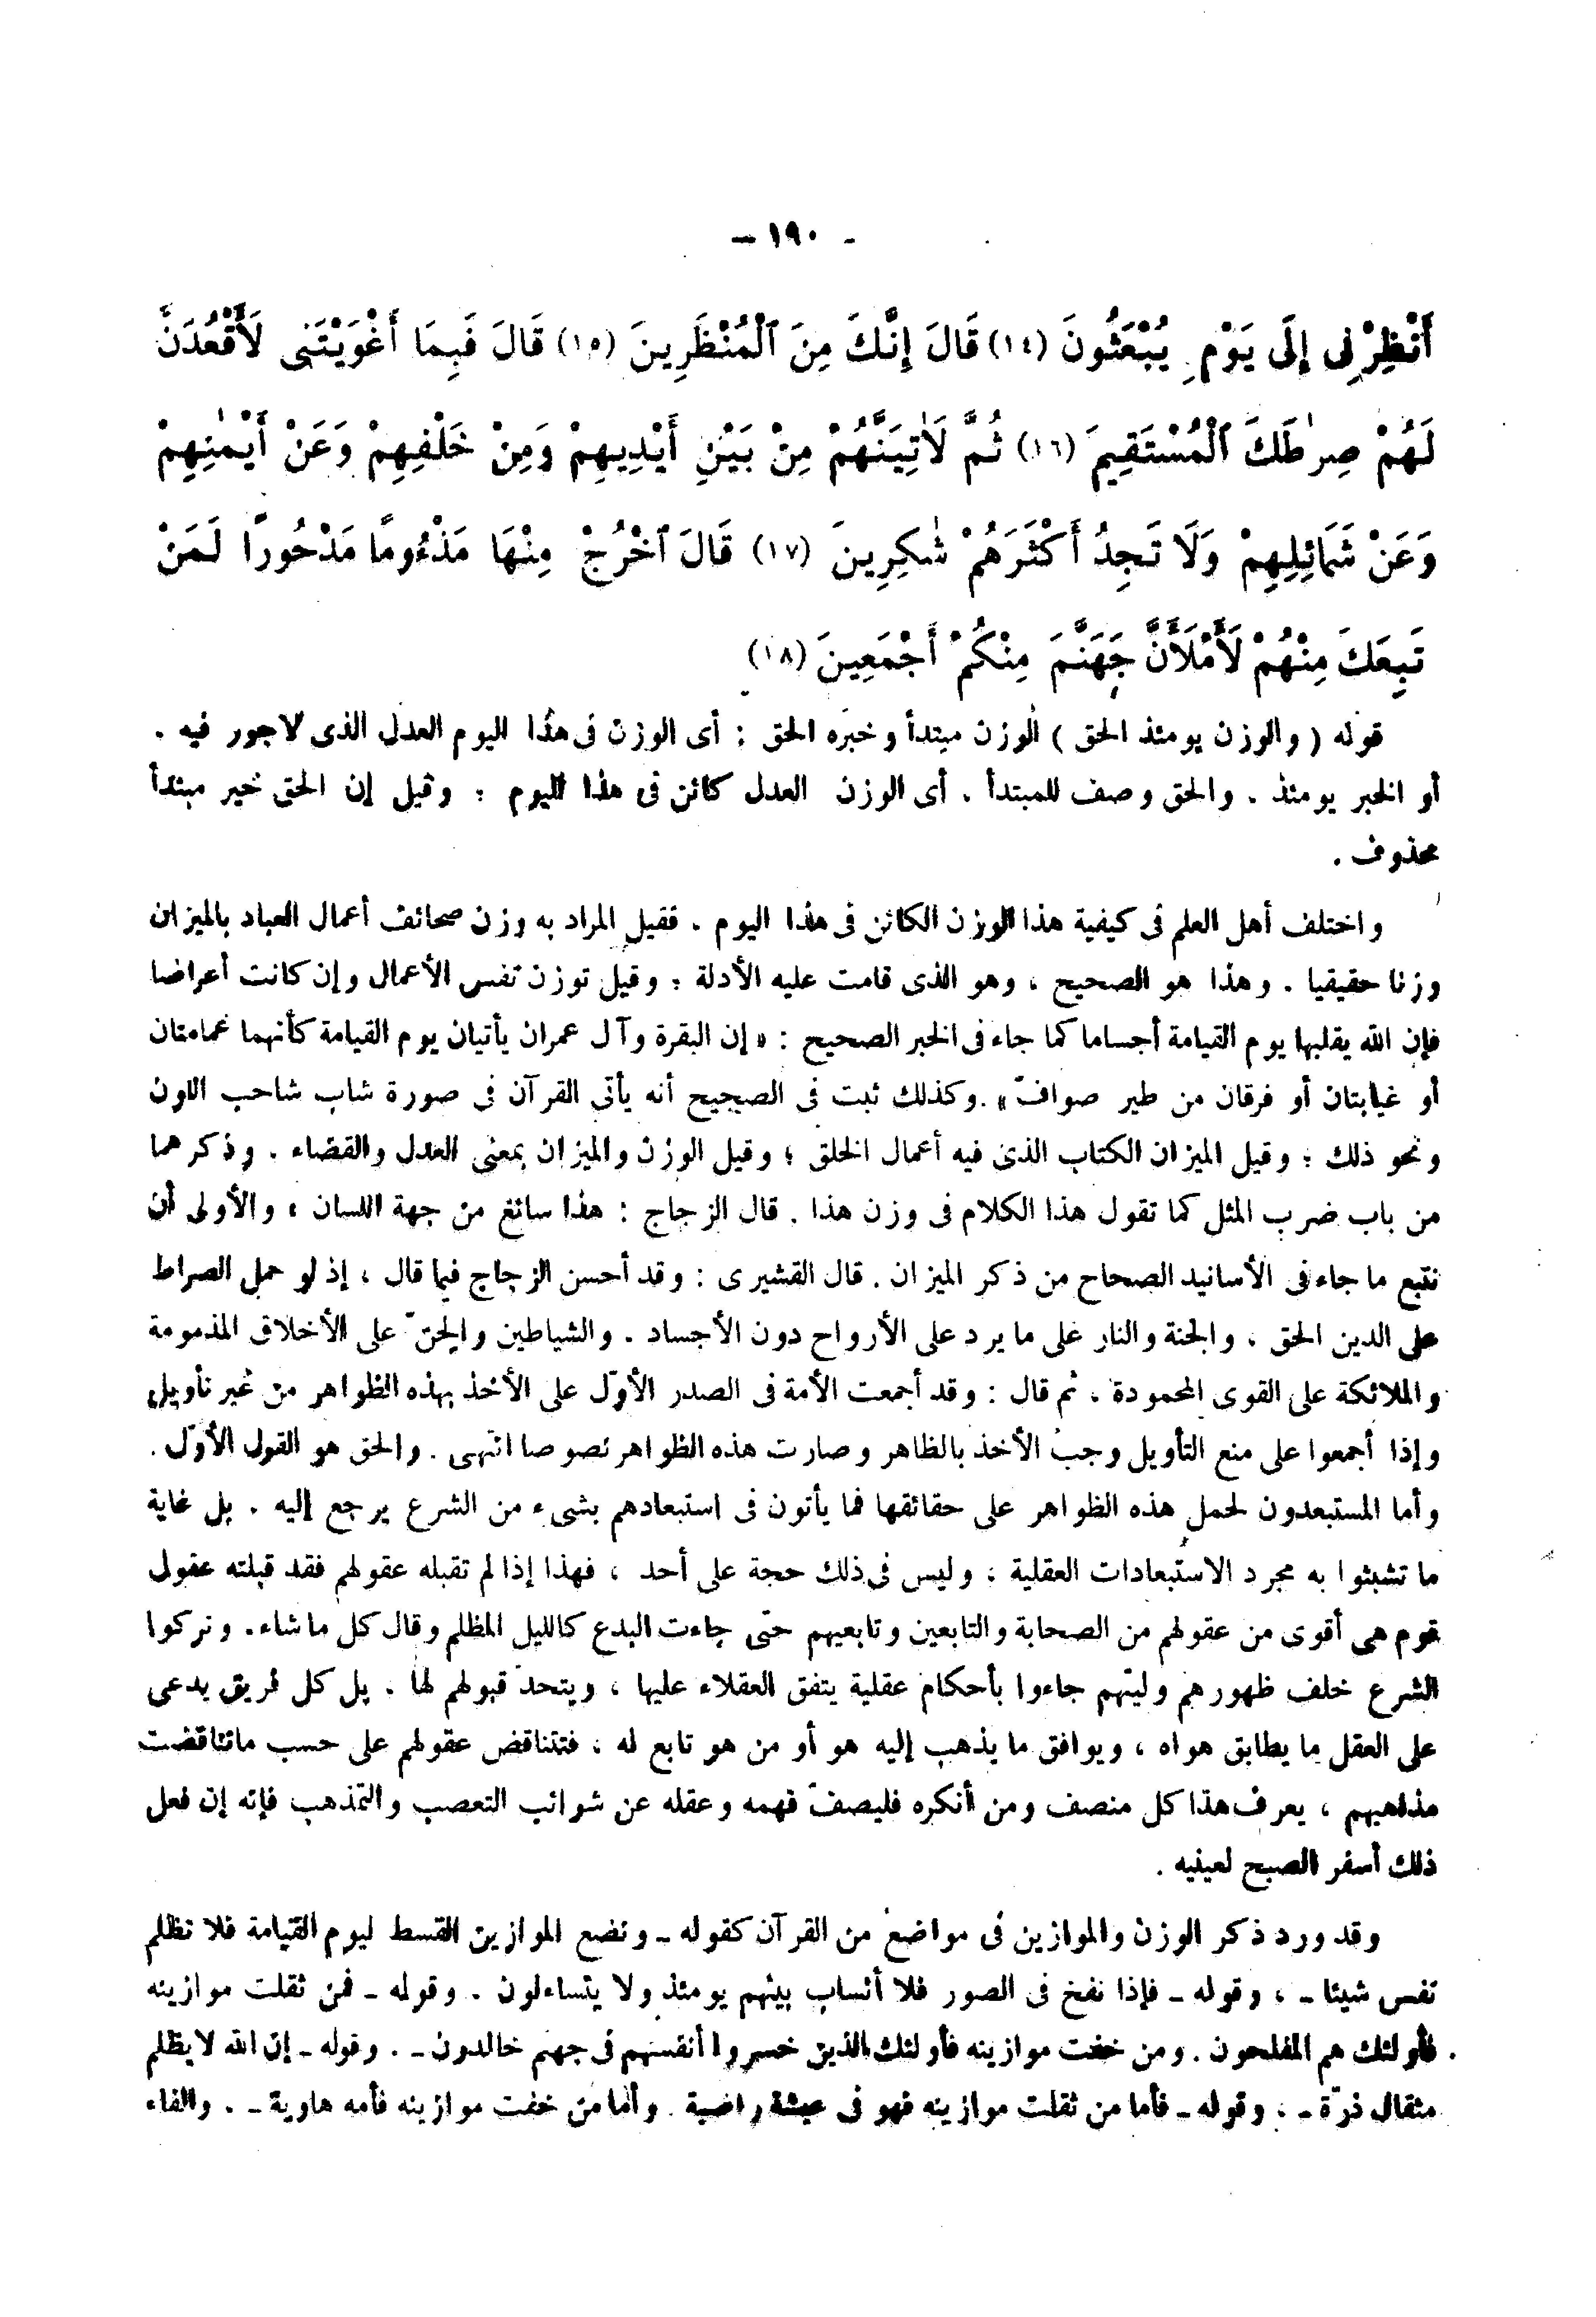 - ١٩٠ -
أَنْظِرْنِى إِلَى يَوْمِ يُبْعَثُونَ (١٤) قَالَ إِنَّكَ مِنَ ٱلْمُنْظَرِينَ (١٥) قَالَ فَبِمَا أَغْوَيْتَنِى لَأَقْعُدَنَّ
لَهُمْ صِرٰطَكَ ٱلْمُسْتَقِيمَ (١٦) ثُمَّ لَآتِيَنَّهُمْ مِنْ بَيْنِ أَيْدِيهِمْ وَمِنْ خَلْفِهِمْ وَعَنْ أَيْمٰنِهِمْ
وَعَنْ شَمَائِلِهِمْ وَلَا تَجِدُ أَكْثَرَهُمْ شٰكِرِينَ (١٧) قَالَ ٱخْرُجْ مِنْهَا مَذْءُومًا مَدْحُورًا لَمَنْ
تَبِعَكَ مِنْهُمْ لَأَمْلَأَنَّ جَهَنَّمَ مِنْكُمْ أَجْمَعِينَ (١٨)
قوله ( والوزن يومئذ الحق ) الوزن مبتدأ وخبره الحق : أى الوزن فى هذا اليوم العدل الذى لا جور فيه .
أو الخبر يومئذ . والحق وصف للمبتدأ . أى الوزن العدل كائن فى هذا اليوم ؛ وقيل إن الحق خبر مبتدأ
محذوف .
واختلف أهل العلم فى كيفية هذا الوزن الكائن فى هذا اليوم . فقيل المراد به وزن صحائف أعمال العباد بالميزان
وزنا حقيقيا . وهذا هو الصحيح ، وهو الذى قامت عليه الأدلة ؛ وقيل توزن نفس الأعمال وإن كانت أعراضا
فإن الله يقلبها يوم القيامة أجساما كما جاء فى الخبر الصحيح : « إن البقرة وآل عمران يأتيان يوم القيامة كأنهما غمامتان
أو غيابتان أو فرقان من طير صوافّ » . وكذلك ثبت فى الصحيح أنه يأتى القرآن فى صورة شاب شاحب اللون
ونحو ذلك ؛ وقيل الميزان الكتاب الذى فيه أعمال الخلق ؛ وقيل الوزن والميزان بمعنى العدل والقضاء . وذكرهما
من باب ضرب المثل كما تقول هذا الكلام فى وزن هذا . قال الزجاج : هذا سائغ من جهة اللسان ، والأولى أن
نتبع ما جاء فى الأسانيد الصحاح من ذكر الميزان . قال القشيرى : وقد أحسن الزجاج فيما قال ، إذ لو حمل الصراط
على الدين الحق ، والجنة والنار على ما يرد على الأرواح دون الأجساد . والشياطين والجنّ على الأخلاق المذمومة
والملائكة على القوى المحمودة ، ثم قال : وقد أجمعت الأمة فى الصدر الأوّل على الأخذ بهذه الظواهر من غير تأويل
وإذا أجمعوا على منع التأويل وجب الأخذ بالظاهر وصارت هذه الظواهر نصوصا انتهى . والحق هو القول الأوّل .
وأما المستبعدون لحمل هذه الظواهر على حقائقها فما يأتون فى استبعادهم بشىء من الشرع يرجع إليه . بل غاية
ما تشبثوا به مجرد الاستبعادات العقلية ، وليس فى ذلك حجة على أحد ، فهذا إذا لم تقبله عقولهم فقد قبلته عقول
قوم هى أقوى من عقولهم من الصحابة والتابعين وتابعيهم حتى جاءت البدع كالليل المظلم وقال كل ما شاء . وتركوا
الشرع خلف ظهورهم وليتهم جاءوا بأحكام عقلية يتفق العقلاء عليها ، ويتحد قبولهم لها . بل كل فريق يدعى
على العقل ما يطابق هواه ، ويوافق ما يذهب إليه هو أو من هو تابع له ، فتتناقض عقولهم على حسب ما تناقضت
مذاهبهم ، يعرف هذا كل منصف ومن أنكره فليصفّ فهمه وعقله عن شوائب التعصب والتمذهب فإنه إن فعل
ذلك أسفر الصبح لعينيه .
وقد ورد ذكر الوزن والموازين فى مواضع من القرآن كقوله - ونضع الموازين القسط ليوم القيامة فلا تظلم
نفس شيئا - ، وقوله - فإذا نفخ فى الصور فلا أنساب بينهم يومئذ ولا يتساءلون . وقوله - فمن ثقلت موازينه
فأولئك هم المفلحون . ومن خفت موازينه فأولئك الذين خسروا أنفسهم فى جهنم خالدون - . وقوله - إن الله لا يظلم
مثقال ذرّة - ، وقوله - فأما من ثقلت موازينه فهو فى عيشة راضية . وأما من خفت موازينه فأمه هاوية - . والفاء